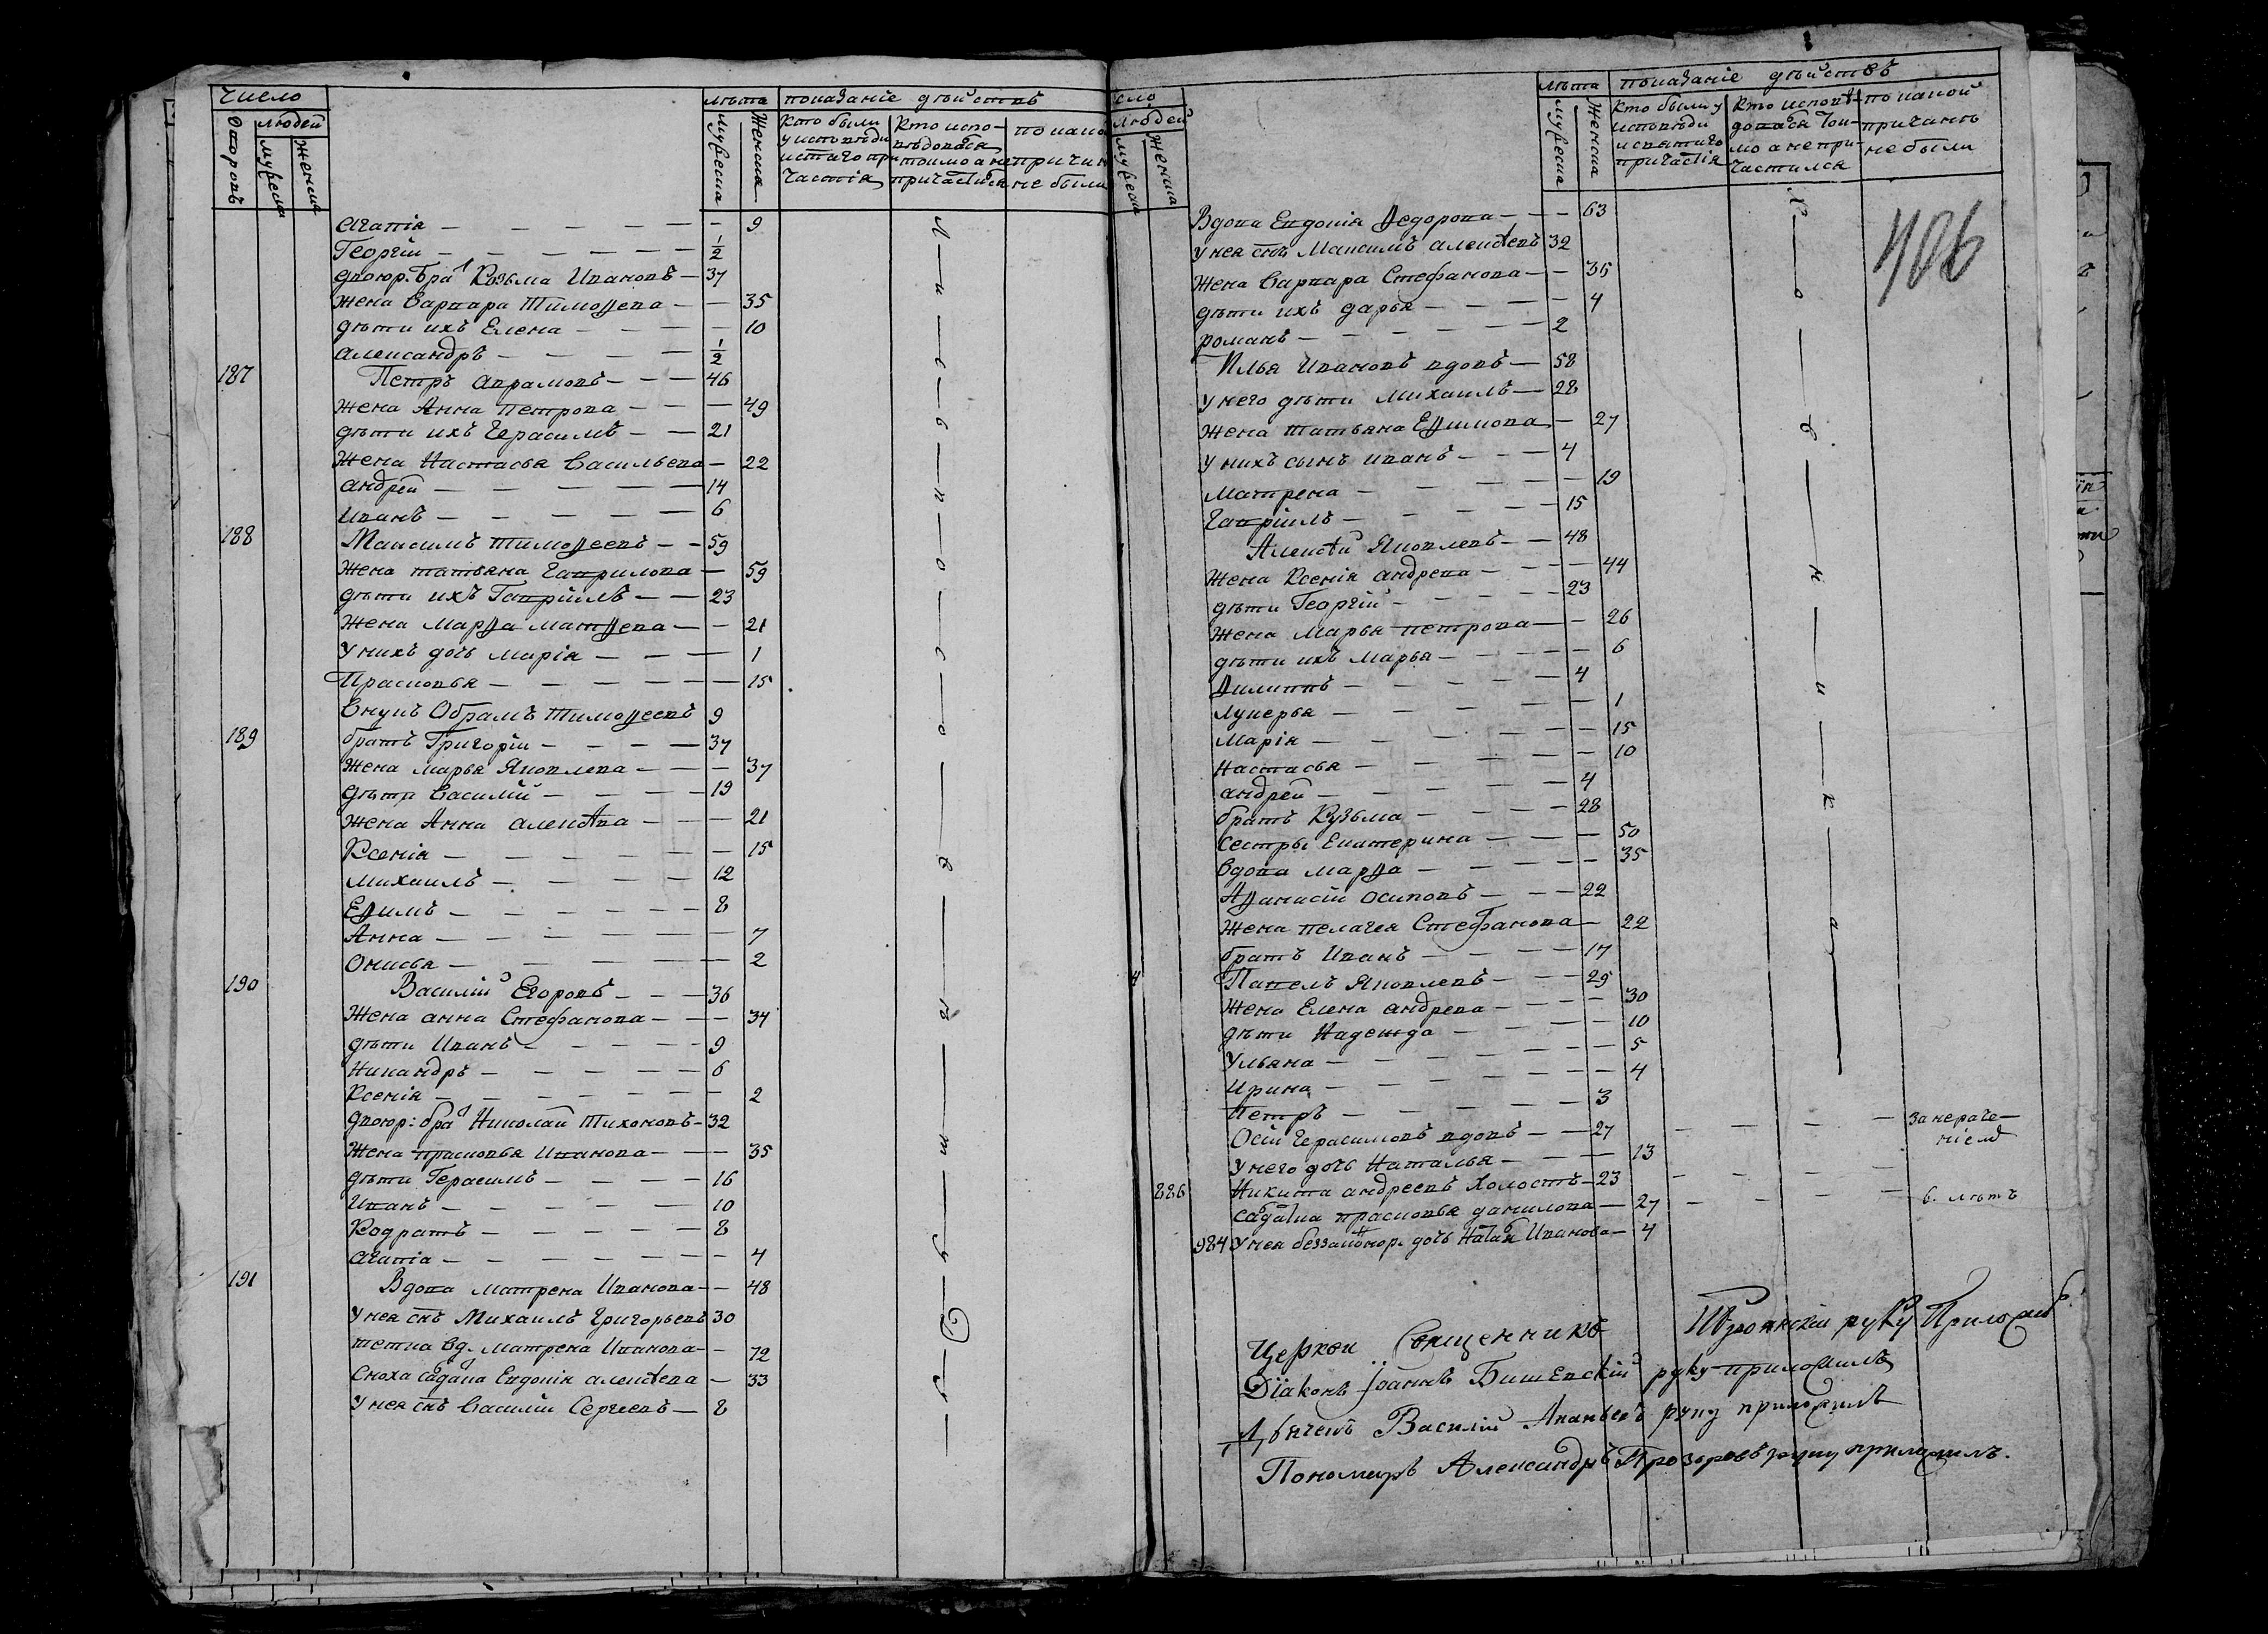 число
дворовъ
людей
мужеска
женска
лѣта
мужеска
женска
показанїе дѣйствъ
кто были у исповѣди и святаго причастїя
кто исповѣдовался токмо а не причастился
по какой причинѣ не были
Агапїя — 9
Георгїи — 1/2
двоюр: бра͡т Козьма Ивановъ — 37
жена Варвара Тимоѳеева — 35
дѣти ихъ Елена — 10
Александръ — 1/2
187 Петръ Аврамовъ — 46
жена Анна Петрова — 49
дѣти ихъ Герасимъ — 21
жена Настасья Васильева — 22
Андрей — 14
Иванъ — 6
188 Максимъ Тимоѳеевъ — 59
жена Татьяна Гаврилова — 59
дѣти ихъ Гаврїилъ — 23
жена Марѳа Матѳева — 21
у нихъ дочь Марїя — 1
Прасковья — 15
Внукъ Обрамъ Тимоѳеевъ 9
189 братъ Григорїи — 37
жена Марья Яковлева — 37
дѣти Василїй — 19
жена Анна Алексѣва — 21
Ксенїя — 15
Михаилъ — 12
Еѳимъ — 8
Анна — 7
Онисья — 2
190 Василїй Егоровъ — 36
жена Анна Стефанова — 34
дѣти Иванъ — 9
Никандръ — 6
Ксенїя — 2
двоюр: бра͡т Николай Тихоновъ — 32
жена Прасковья Иванова — 35
дѣти Герасимъ — 16
Иванъ — 10
Кодратъ — 8
Агапїа — 4
191 Вдова Матрена Иванова — 48
у нея снъ Михаилъ Григорьевъ 30
тетка вд. Матрена Иванова — 72
Сноха Евдокїя Алексѣева — 33
у нея снъ Василїй Сергеевъ — 8
людей
мужеска
женска
лѣта
мужеска
женска
показанїе дѣйствъ
кто были у исповѣди и святаго причастїя
кто исповѣдовался токмо а не причастился
по какой причинѣ не были
406
Вдова Евдокїя Ѳедорова — 63
у нея снъ Максимъ Алексѣевъ 32
жена Варвара Стефанова — 35
дѣти ихъ Дарья — 4
Романъ — 2
Илья Ивановъ вдовъ — 58
у него дѣти Михаилъ — 28
жена Татьяна Еѳимова — 27
у нихъ сынъ Иванъ — 4
Матрена — 19
Гаврїилъ — 15
Алексѣй Яковлевъ — 48
жена Ксенїя Андрева — 44
дѣти Георгїй — 23
жена Марья Петрова — 26
дѣти ихъ Марья — 6
Ѳилиппъ — 4
Лукерья — 1
Марїя — 15
Настасья — 10
Андрей — 4
братъ Кузьма — 28
сестры Екатерина — 50
вдова Марѳа — 35
Аѳанасїй Осиповъ — 22
жена Пелагея Стефанова — 22
братъ Иванъ — 17
4 Павелъ Яковлевъ — 29
жена Елена Андрева — 30
дѣти Надежда — 10
Ульяна — 5
Ирина — 4
Петръ — 3
Осїй Герасимовъ вдовъ — 27 — за нераченїемъ
у него дочь Наталья — 13
886 Никита Андреевъ холостъ — 23
Прасковья Данилова — 27 — б. лѣтъ
984 у нея беззаконор. дочь Ната͡я Иванова — 4
Церкви Священникъ руку приложилъ
Дїаконъ Іоаннъ руку приложилъ
Дьячекъ Василїй Ананьевъ руку приложилъ
Пономарь Александръ Прозоровъ руку приложилъ.